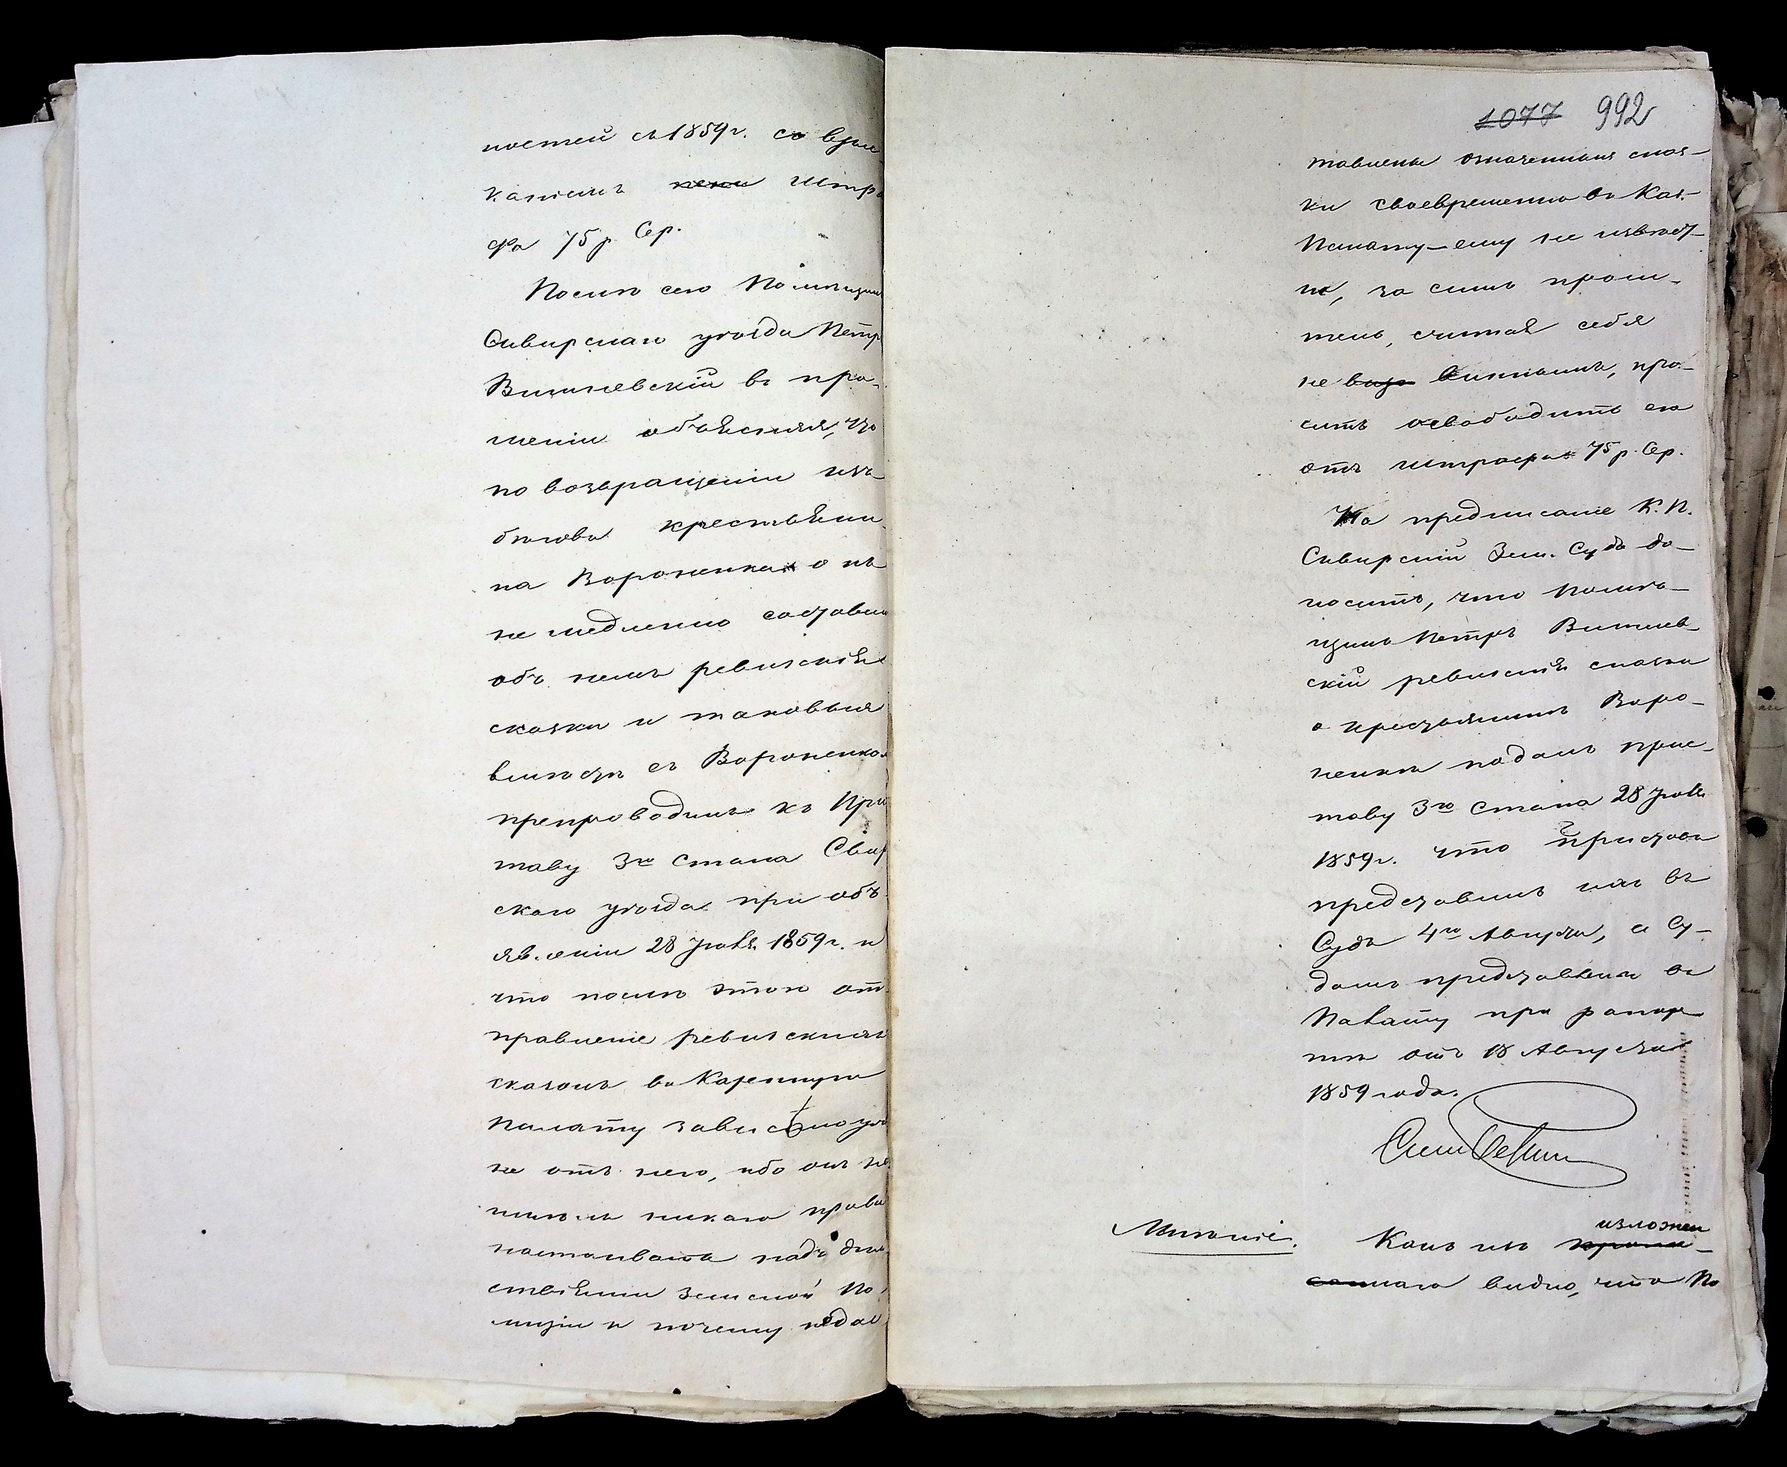 ностей съ 1859 г. со взыс-
каніемъ пени Штра
фа 75 р. Сер.
Послѣ сего Помѣщикъ
Сквирскаго уѣзда Петръ
Вишневскій въ про-
шеніи объясняя, что
по возвращеніи изъ
бѣговъ крестьяни-
на Вороненка о нъ
не медленно составил
объ немъ ревизскія
сказки и таковыя
вмѣстѣ съ Вороненком
препроводилъ къ При
таву 3го Стана Сквир
скаго уѣзда при объ
явленіи 28 Іюля 1859 г. и
что послѣ этого от
правленіе ревизскихъ
сказокъ въ Казенную
Палату зависѣло уже
не отъ него, ибо онъ не
имѣлъ никакаго права
настаивать надъ дѣй
ствіями Земской По
лиціи и почему не дос
1077 992
тавлены означенныя сказ-
ки своевременно въ Каз.
Палату - ему не извѣст-
но, за симъ проси-
тель, считая себя
не виновнымъ, про-
ситъ освободить его
отъ штрафа 75 р. Сер.
На предписаніе К. П.
Сквирскій Зем. Судъ до-
носитъ, что Помѣ-
щикъ Петръ Вишнев-
скій ревизскія сказки
о крестьянинѣ Воро-
ненкѣ подалъ прис-
таву 3го Стана 28 Іюля
1859 г. что Приставъ
представилъ ихъ въ
Судъ 4го Августа, а Су-
домъ представлены въ
Палату при рапор
тѣ отъ 18 Августа
1859 года.
Мнѣніе. Какъ изъ изложен
наго видно, что По